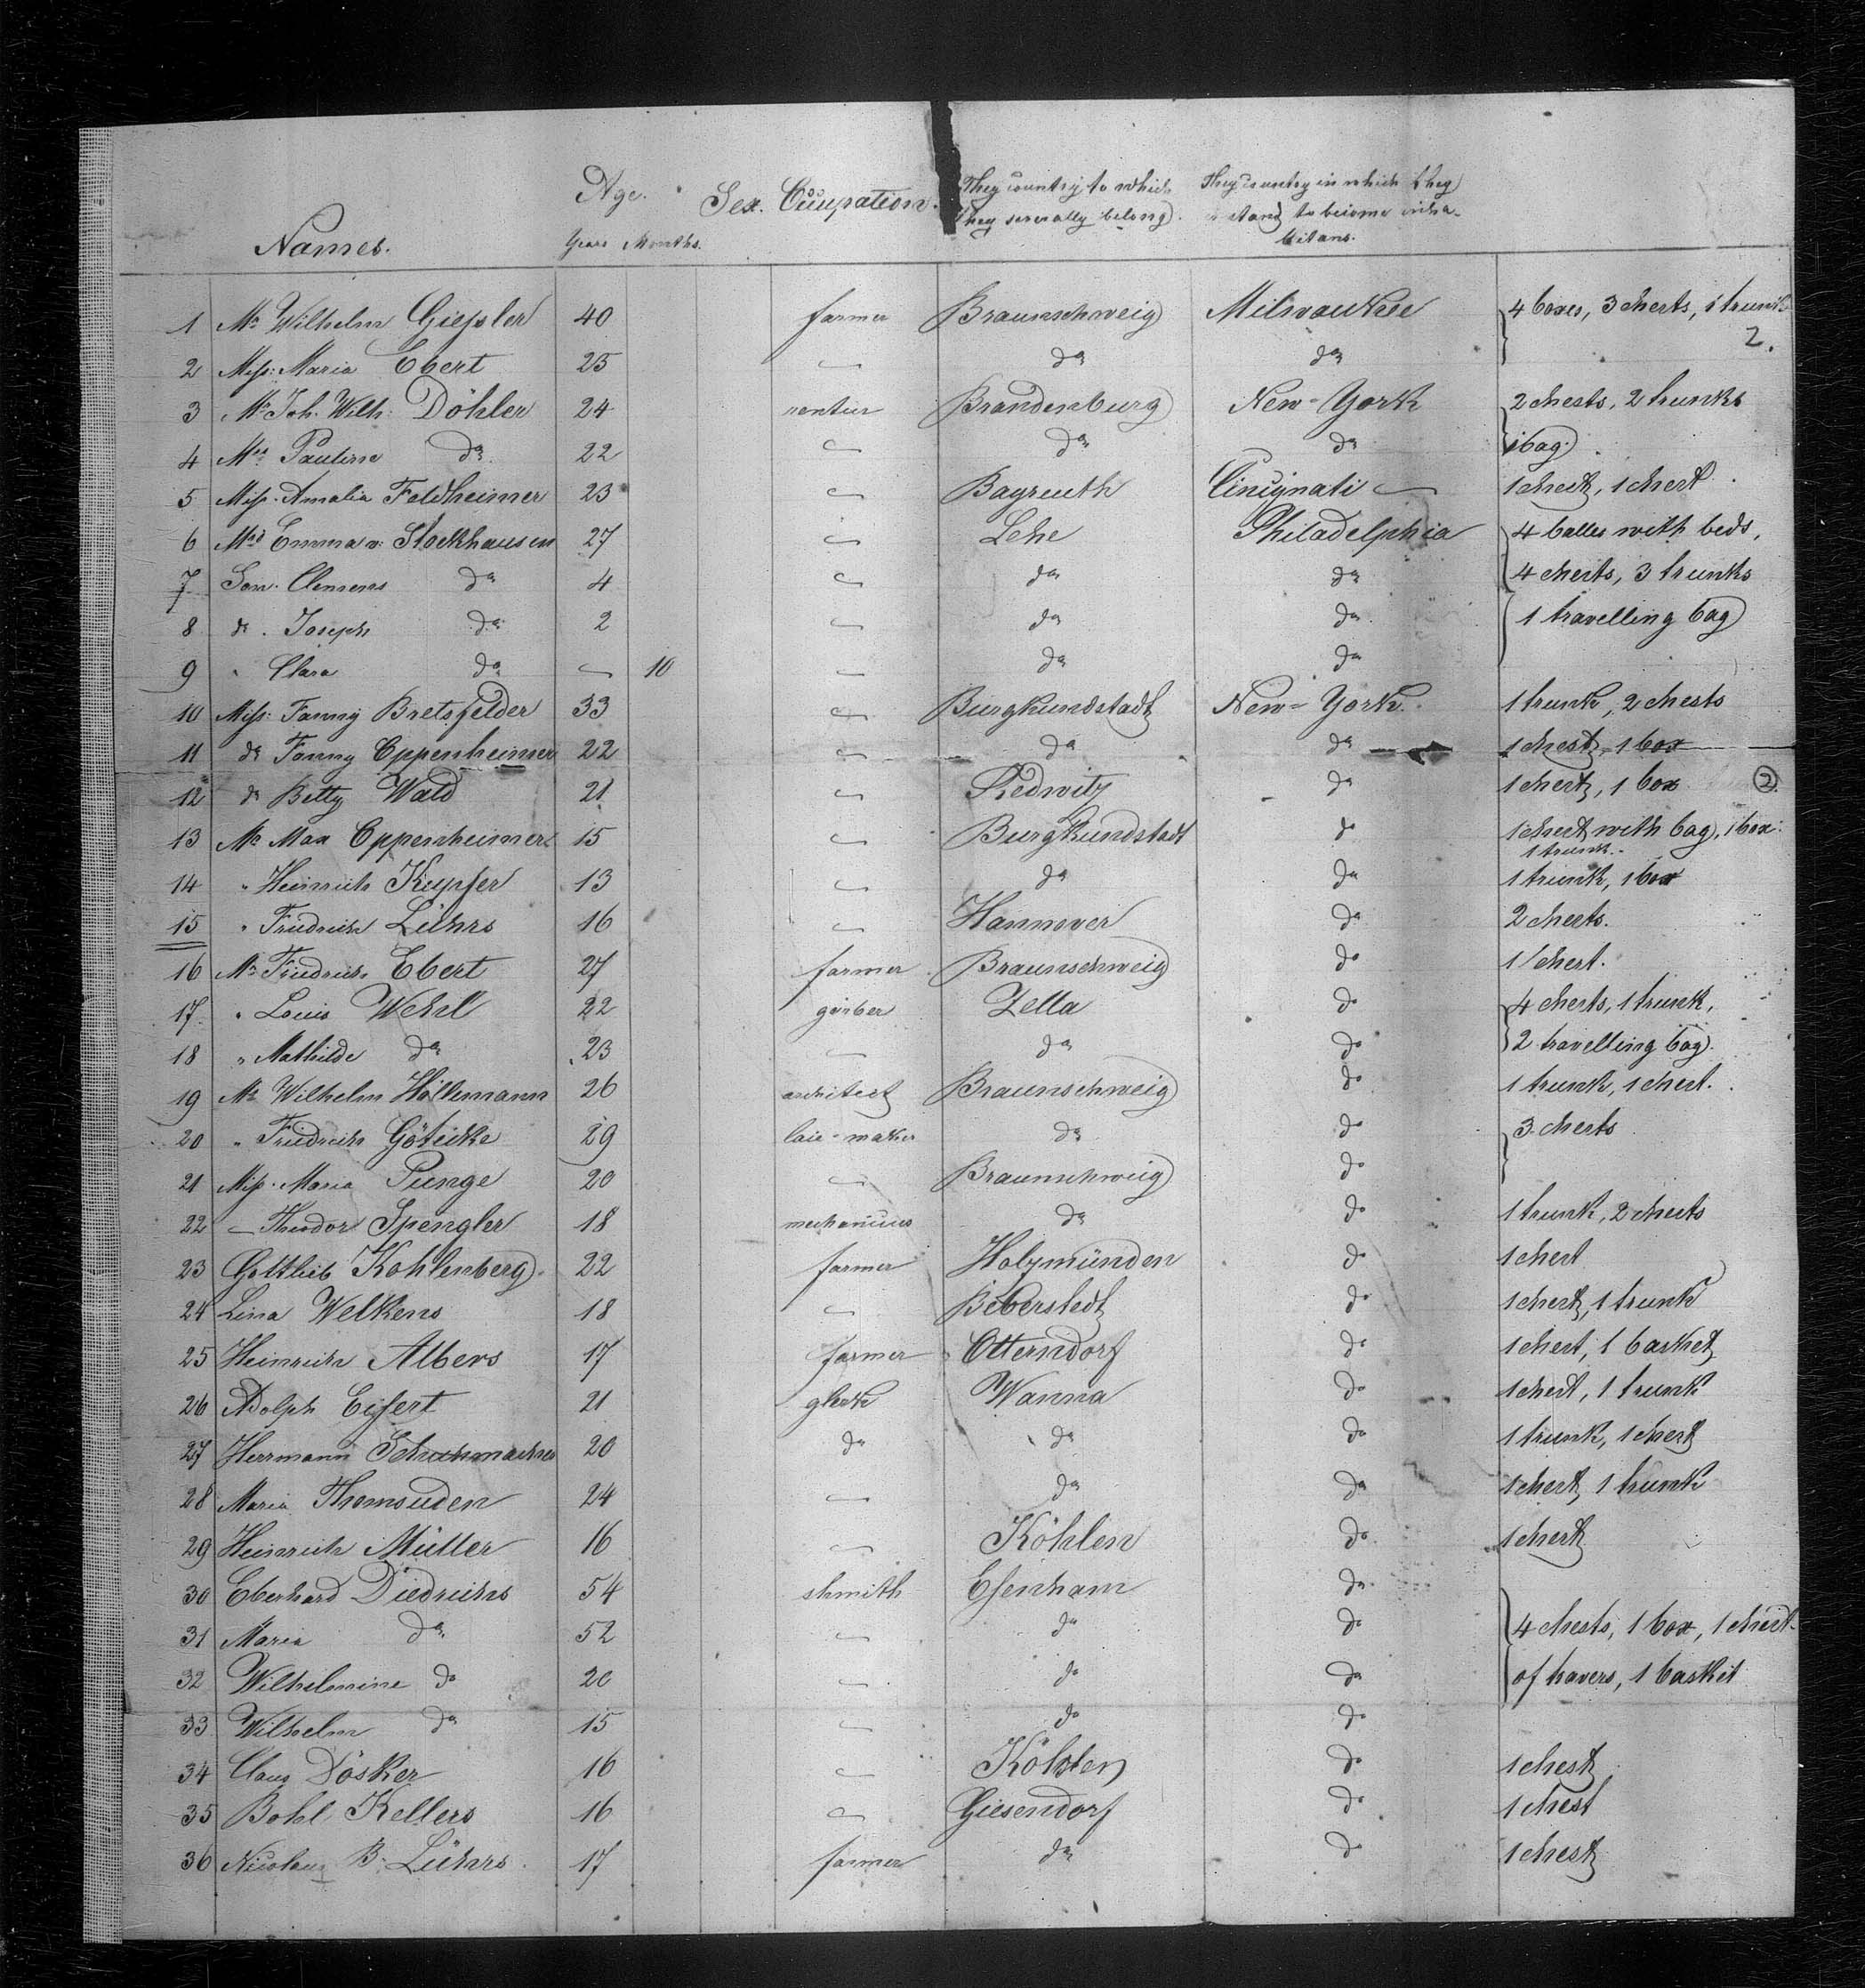 Names. Age. Sex. Occupation. They country to which They country in which they
they severally belong. intend to become inha-
Years Months. bitans.
1 Mr Wilhelm Gießler 40 farmer Braunschweig Milwaukee 4 boxes, 3 chests, 1 trunk
2.
2 Miß: Maria Ebert 25 — do do
3 Mr Joh. Wilh: Döhler 24 rentier Brandenburg New-York 2 chests, 2 trunks
4 Mrs Pauline do 22 — do do 1 bag.
5 Miß. Amalia Feldheimer 23 — Bayreuth Cincignati — 1 chest, 1 chest
6 Mrs Emma v. Stockhausen 27 — Lehe Philadelphia 4 balles with beds,
7 Son. Clemens do 4 — do do 4 chests, 3 trunks
8 do. Joseph do 2 — do do 1 travelling bag
9 " Clara do — 10 — do do
10 Miß: Fanny Bretsfelder 33 — Burgkundstadt New-York. 1 trunk, 2 chests
11 do Fanny Oppenheimer 22 — do do 1 chest, 1 box
12 do Betty Wald 21 — Redwitz do 1 chest, 1 box 2.
13 Mr Max Oppenheimer 15 — Burgkundstadt do 1 chest with bag, 1 box:
1 trunk.
14 " Heinrich Kupfer 13 — do do 1 trunk, 1 box
15 " Friedrich Lührs 16 — Hannover do 2 chests.
16 Mr Friedrich Ebert 27 farmer Braunschweig do 1 chest.
17 " Louis Wehrl 22 gärber Zella do 4 chests, 1 trunk,
18 " Mathilde do 23 — do do 2 travelling bag.
19 Mr Wilhelm Höltemann 26 architect Braunschweig do 1 trunk, 1 chest.
20 " Friedrich Göticke 29 laie-maker do do 3 chests
21 Miß. Maria Punge 20 — Braunschweig do
22 — Theodor Spengler 18 mechanicus do do 1 trunk, 2 chests
23 Gottlieb Kohlenberg 22 farmer Holzmünden do 1 chest
24 Lina Welkens 18 — Beberstedt do 1 chest, 1 trunk
25 Heinrich Albers 17 farmer Otterndorf do 1 chest, 1 basket
26 Adolph Eyfert 21 glerk Wanna do 1 chest, 1 trunk
27 Herrmann Schuhmacher 20 do do do 1 trunk, 1 chest
28 Maria Thomsuden 24 — do do 1 chest, 1 trunk
29 Heinrich Müller 16 — Köhlen do 1 chest
30 Eberhard Diedrichs 54 shmith Esenham do
31 Maria do 52 — do do 4 chests, 1 box, 1 chest
32 Wilhelmine do 20 — do do of havers, 1 baskit
33 Wilhelm do 15 — do do
34 Claus Dösker 16 — Köhlen do 1 chest
35 Bohl Kellers 16 — Giesendorf do 1 chest
36 Nicolaus B. Lührs. 17 farmer do do 1 chest